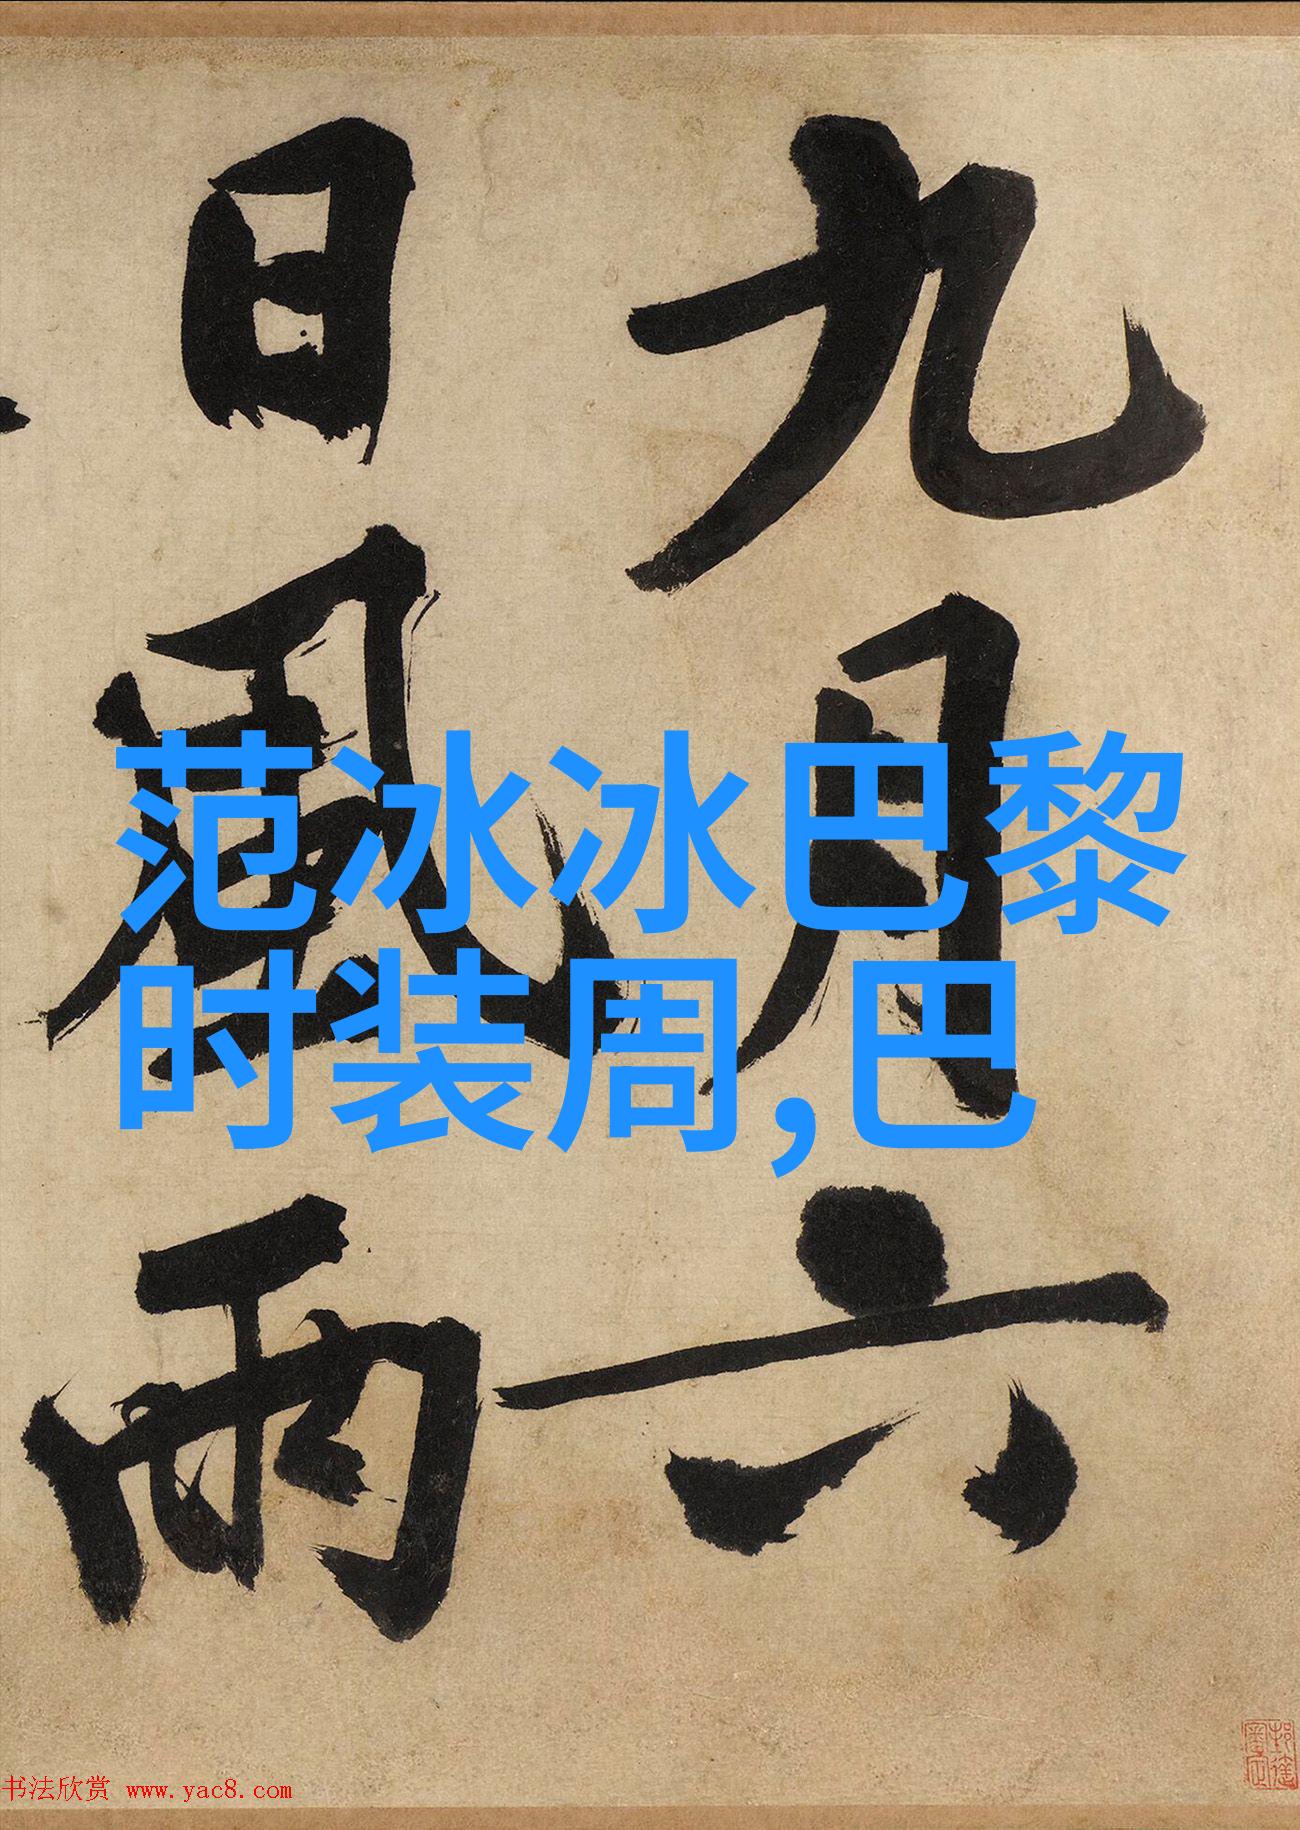 九月六
日風雨
范冰冰巴黎
时装周,巴
书法欣赏 www.yac8.com